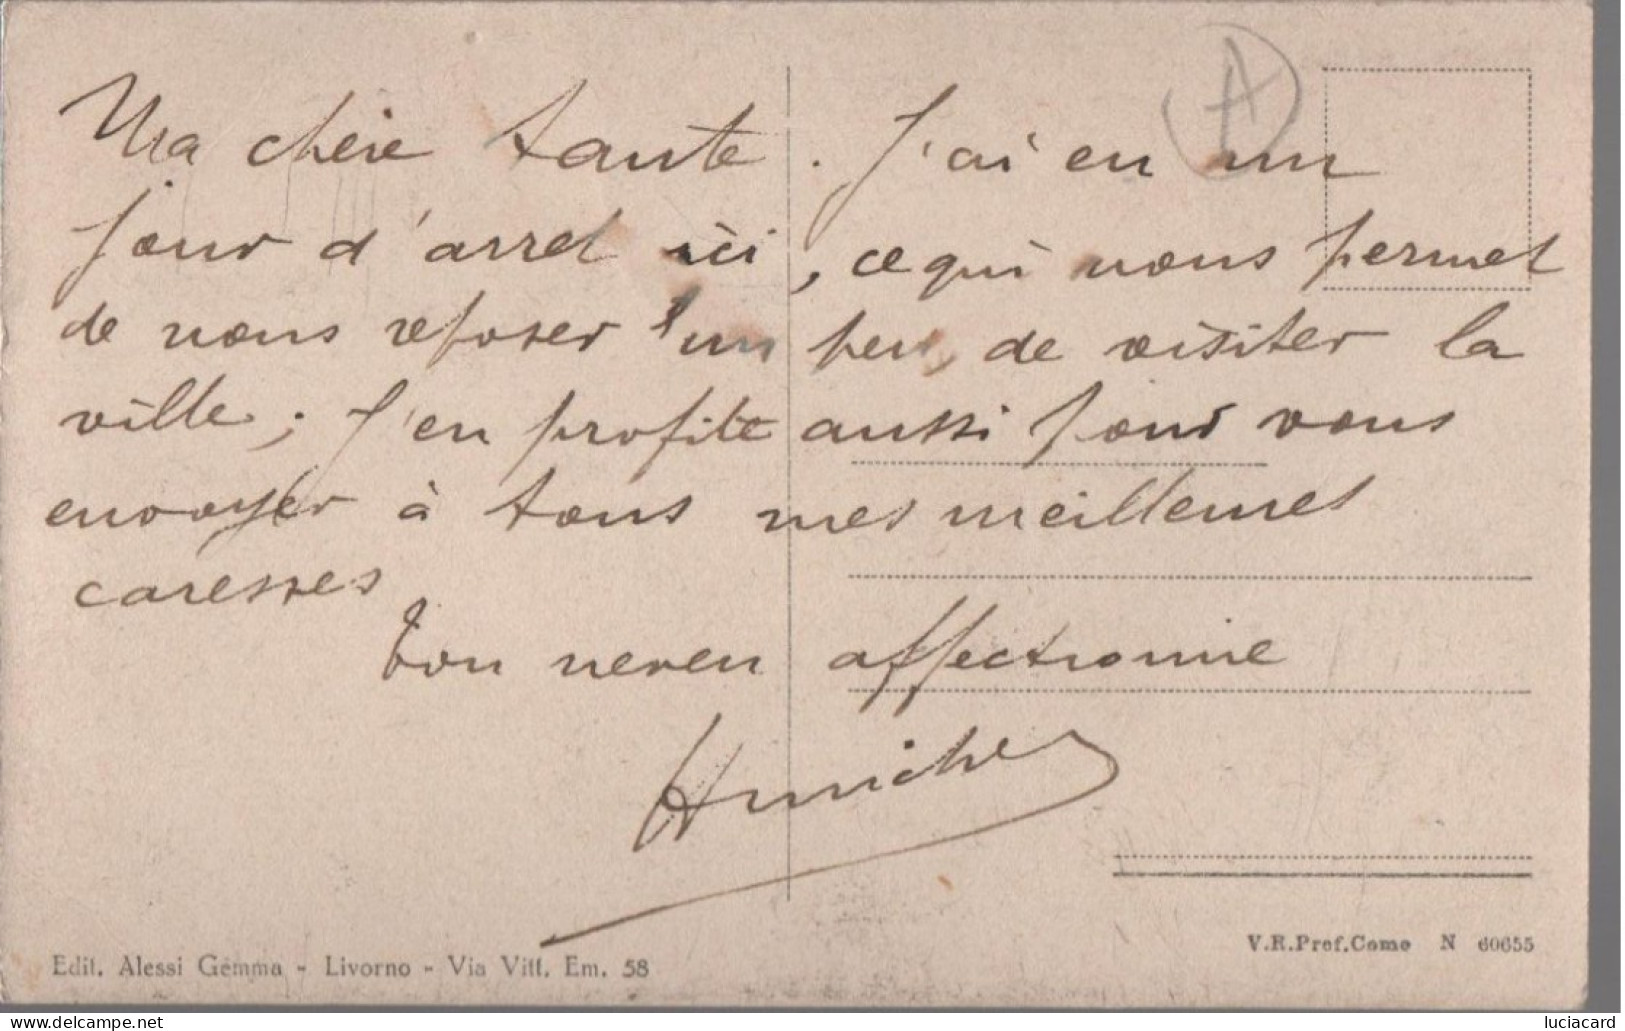 Ma chère tante. J'ai eu un
jour d'arret ici, ce qui nous permet
de nous reposer un peu, de visiter la
ville; j'en profite aussi pour vous
envoyer à tous mes meilleures
caresses
Ton neveu affectionné
A
Edit. Alessi Gemma - Livorno - Via Vitt. Em. 58
V.R.Pref.Como N 60655
luciacard